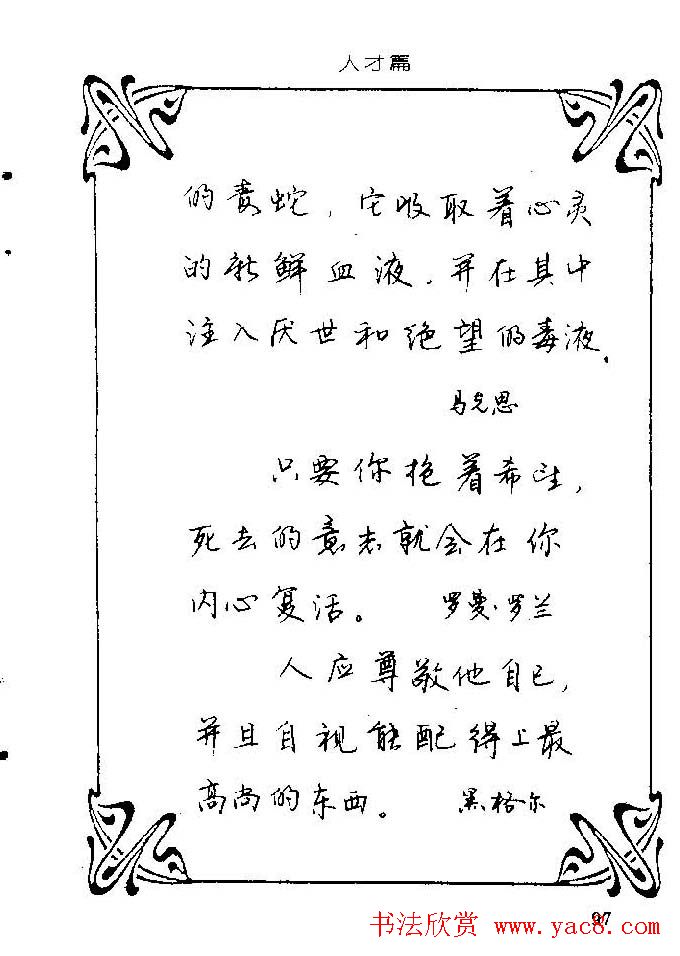 人才篇
的毒蛇，它吸取着心灵
的新鲜血液，并在其中
注入厌世和绝望的毒液．
马克思
只要你抱着希望，
死去的意志就会在你
内心复活。 罗曼·罗兰
人应尊敬他自己，
并且自视能配得上最
高尚的东西。 黑格尔
97
书法欣赏 www.yac8.com